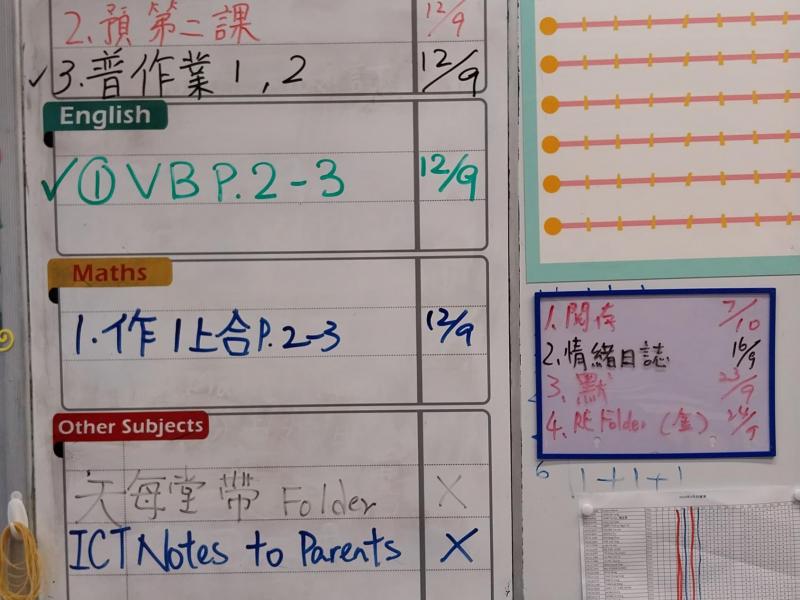 2. 預第二課 12/9
✓ 3. 普作業 1, 2 12/9
English
✓ ① VB P. 2-3 12/9
Maths
1. 作 1上合 P. 2-3 12/9
Other Subjects
每堂帶 Folder X
ICT Notes to Parents X
1. 7/10
2. 情緒日誌 16/9
3. 默 23/9
4. RE Folder (金) 24/9
1 + 1 + 1